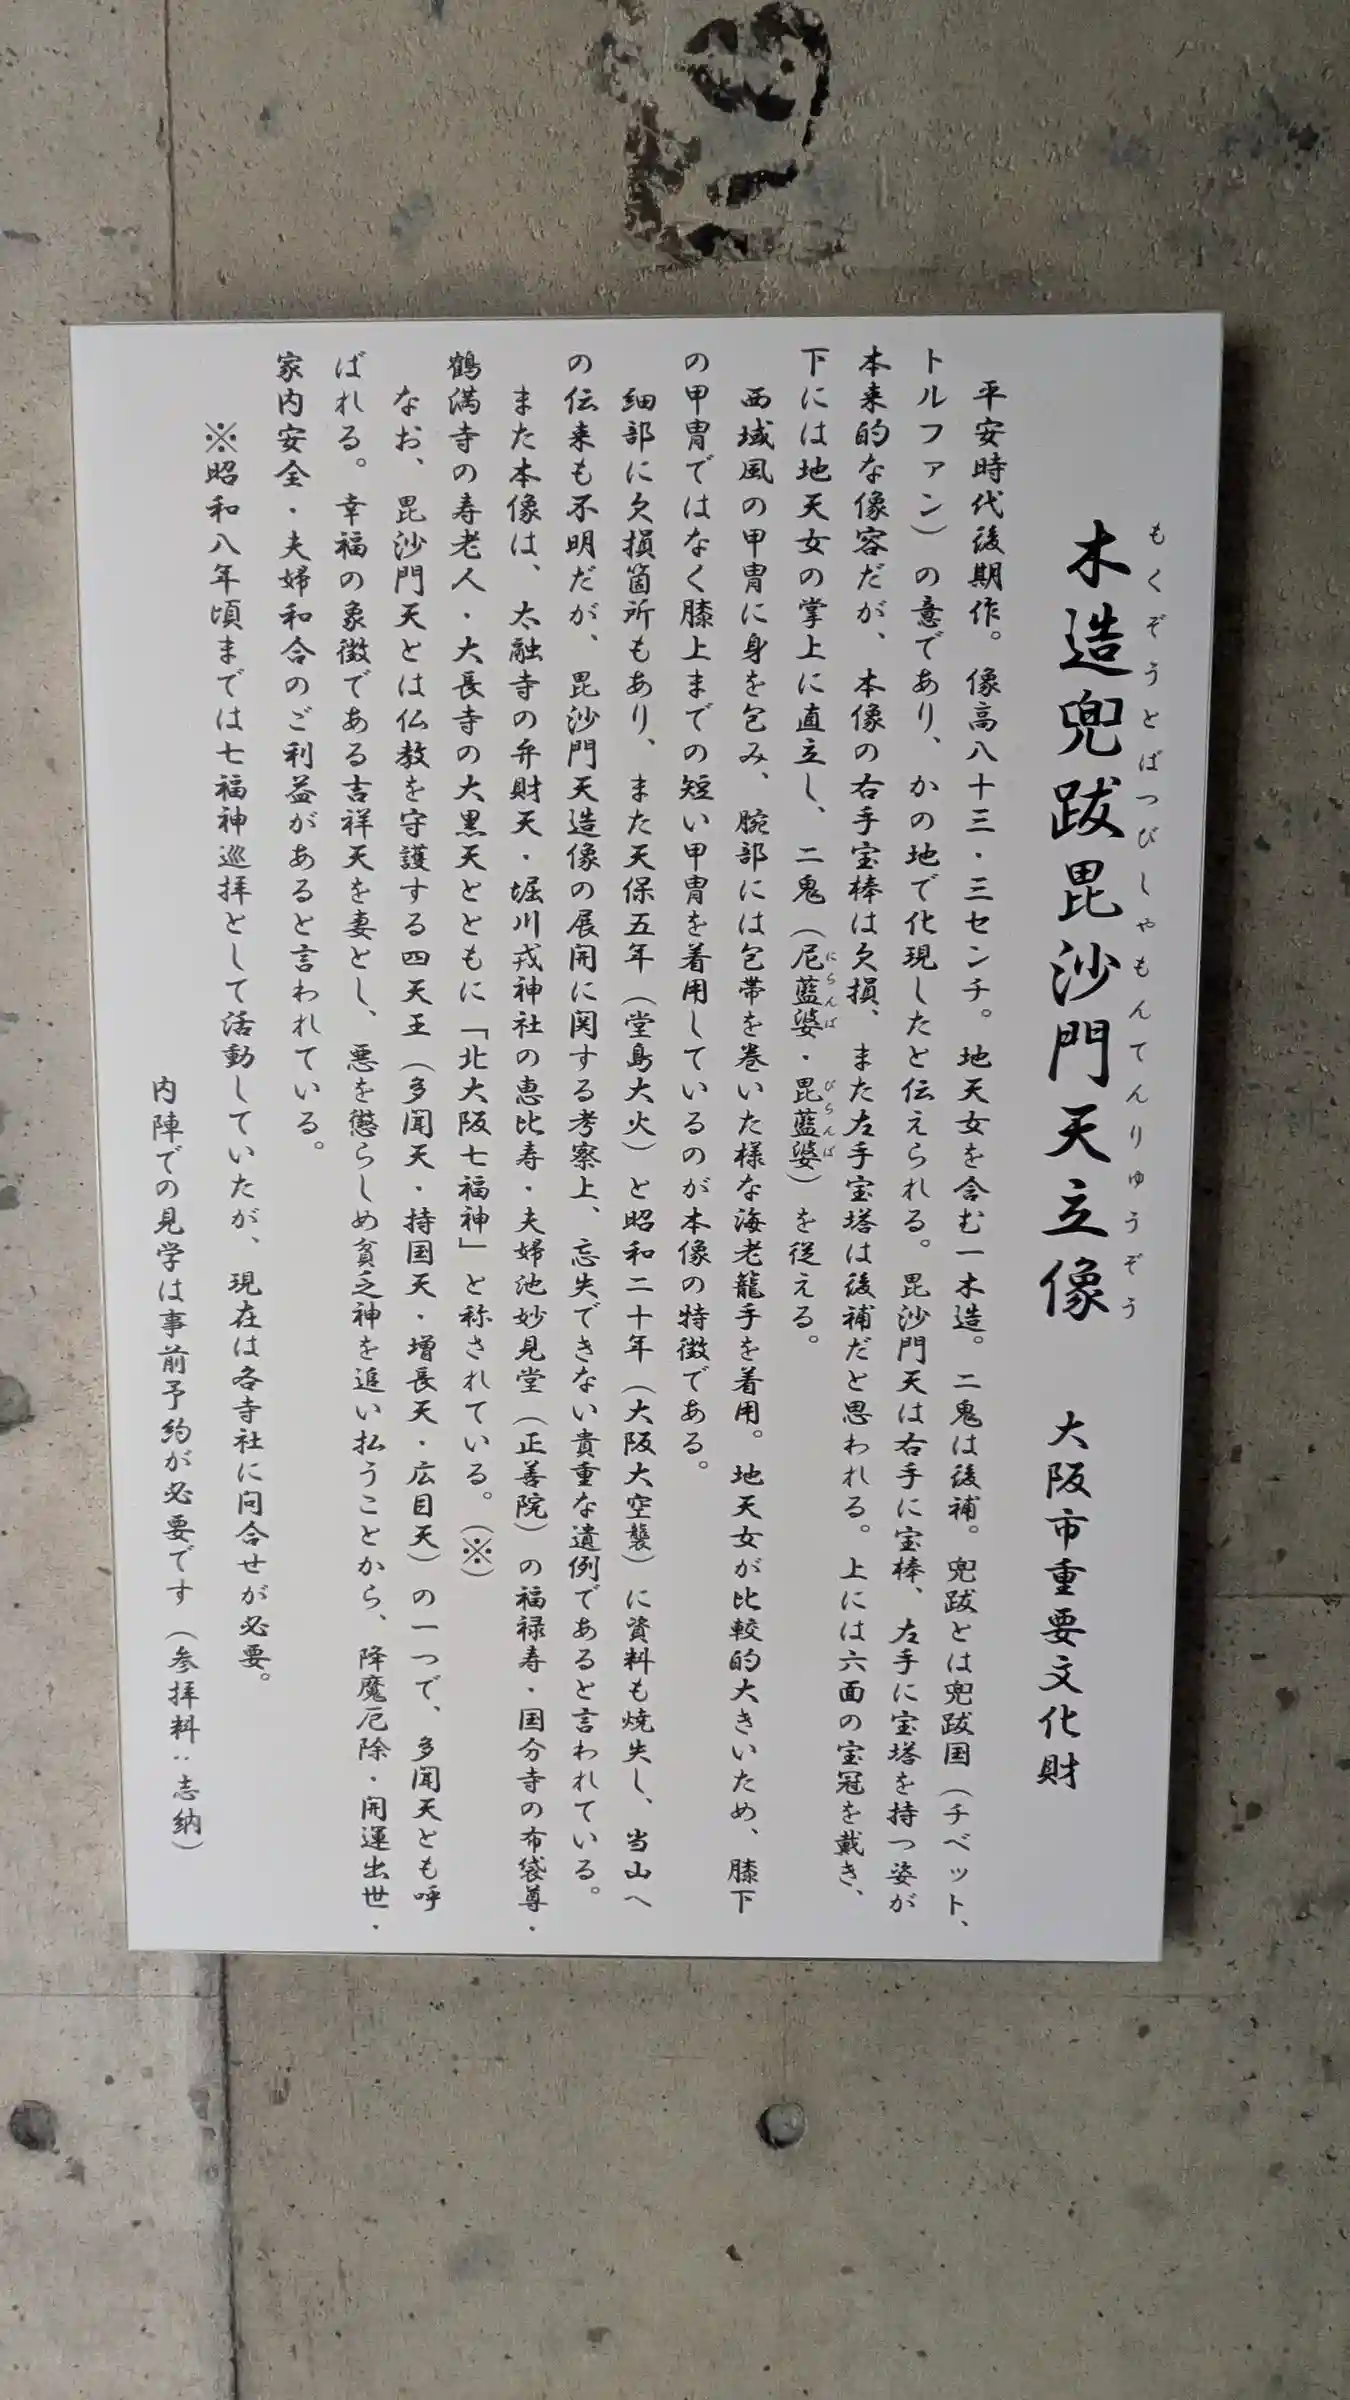 もくぞうとばつびしゃもんてんりゅうぞう
木造兜跋毘沙門天立像 大阪市重要文化財
平安時代後期作。像高八十三・三センチ。地天女を含む一木造。二鬼は後補。兜跋とは兜跋国（チベット、
トルファン）の意であり、かの地で化現したと伝えられる。毘沙門天は右手に宝棒、左手に宝塔を持つ姿が
本来的な像容だが、本像の右手宝棒は欠損、また左手宝塔は後補だと思われる。上には六面の宝冠を戴き、
下には地天女の掌上に直立し、二鬼（尼藍婆・毘藍婆）を従える。
にらんば びらんば
西域風の甲冑に身を包み、腕部には包帯を巻いた様な海老籠手を着用。地天女が比較的大きいため、膝下
の甲冑ではなく膝上までの短い甲冑を着用しているのが本像の特徴である。
細部に欠損箇所もあり、また天保五年（堂島大火）と昭和二十年（大阪大空襲）に資料も焼失し、当山へ
の伝来も不明だが、毘沙門天造像の展開に関する考察上、忘失できない貴重な遺例であると言われている。
また本像は、太融寺の弁財天・堀川戎神社の恵比寿・夫婦池妙見堂（正善院）の福禄寿・国分寺の布袋尊・
鶴満寺の寿老人・大長寺の大黒天とともに「北大阪七福神」と称されている。（※）
なお、毘沙門天とは仏教を守護する四天王（多聞天・持国天・増長天・広目天）の一つで、多聞天とも呼
ばれる。幸福の象徴である吉祥天を妻とし、悪を懲らしめ貧乏神を追い払うことから、降魔厄除・開運出世・
家内安全・夫婦和合のご利益があると言われている。
※昭和八年頃までは七福神巡拝として活動していたが、現在は各寺社に問合せが必要。
内陣での見学は事前予約が必要です（参拝料：志納）